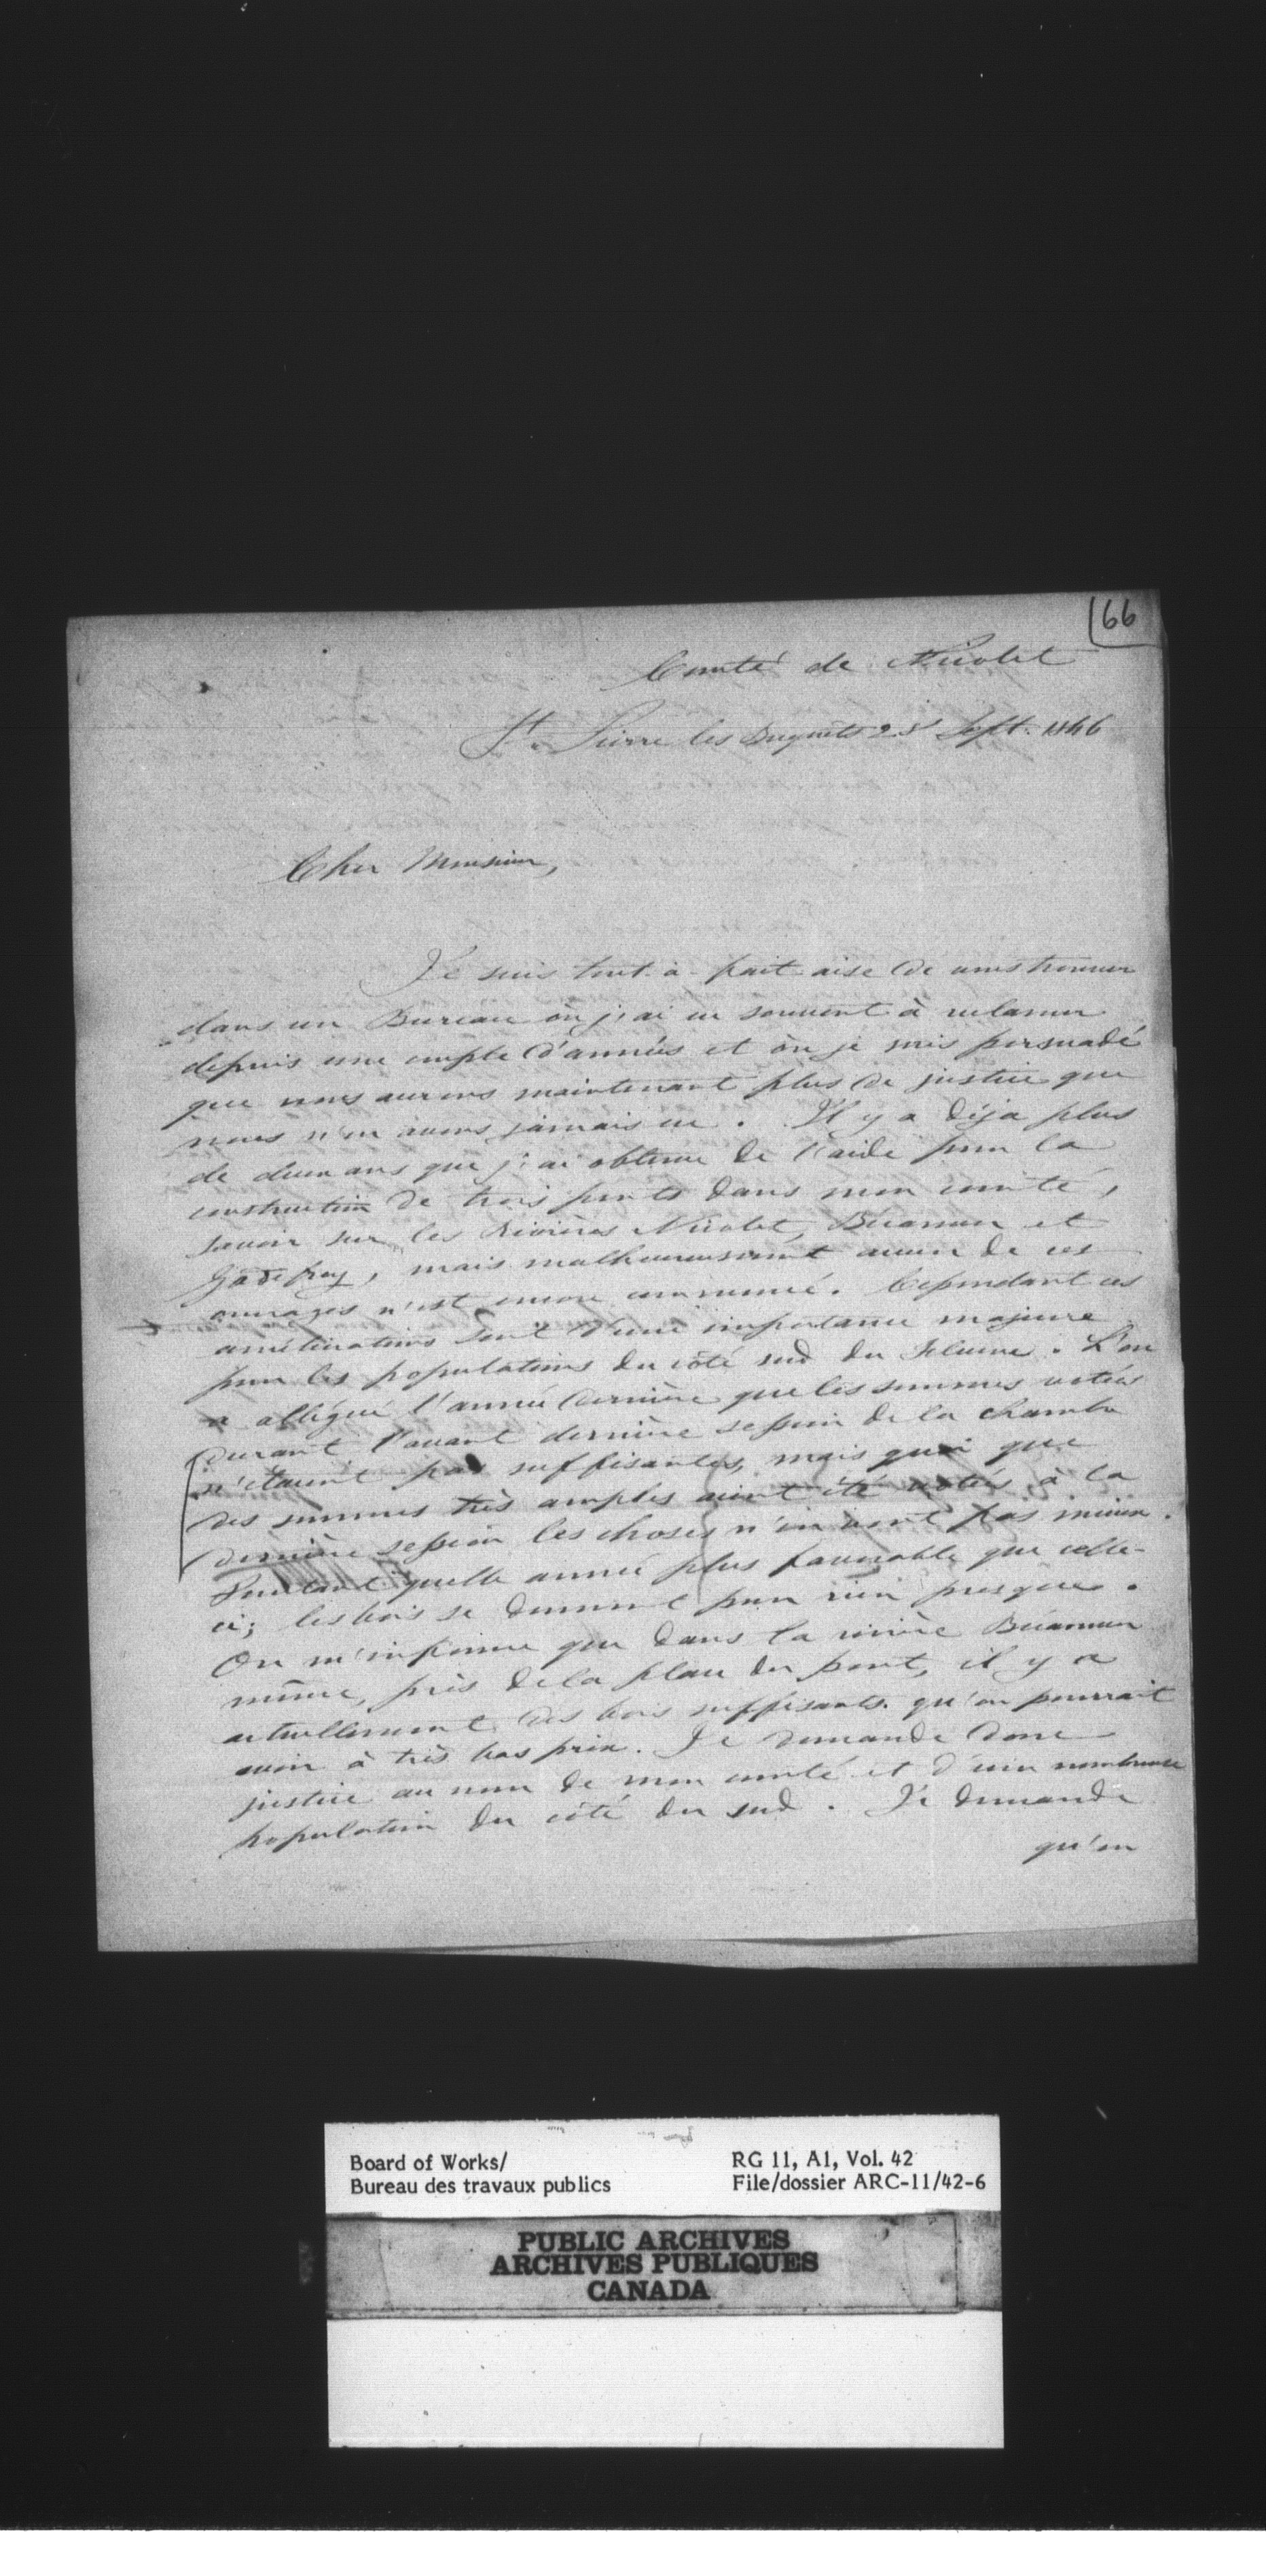 166
Comté de Nicolet
St. Pierre les Becquets 28 Sept. 1846
Cher Monsieur,
Je suis tout-à-fait aise de vous trouver
dans un Bureau où j'ai eu souvent à réclamer
depuis une couple d'années et où je suis persuadé
que nous aurons maintenant plus de justice que
nous n'en avons jamais eu. Il y a déja plus
de deux ans que j'ai obtenu de l'aide pour la
construction de trois ponts dans mon comté,
savoir sur les Rivières Nicolet, Bécancour et
Godefroy, mais malheureusement aucun de ces
ouvrages n'est encore commencé. Cependant ces
améliorations sont d'une importance majeure
pour les populations du côté sud du fleuve. L'on
a allégué l'année dernière que les sommes votées
durant l'avant dernière session de la Chambre
n'étaient pas suffisantes, mais quoi que
des sommes très amples aient été votées à la
dernière session les choses n'en vont pas mieux.
Pourtant quelle année plus favorable que celle-
ci; les bois se donnent pour rien presque.
On m'informe que dans la rivière Bécancour
même, près de la place du pont, il y a
actuellement des bois suffisants qu'on pourrait
avoir à très bas prix. Je demande donc
justice au nom de mon comté et d'une nombreuse
population du côté du sud. Je demande
qu'on
Board of Works/
Bureau des travaux publics
RG 11, A1, Vol. 42
File/dossier ARC-11/42-6
PUBLIC ARCHIVES
ARCHIVES PUBLIQUES
CANADA